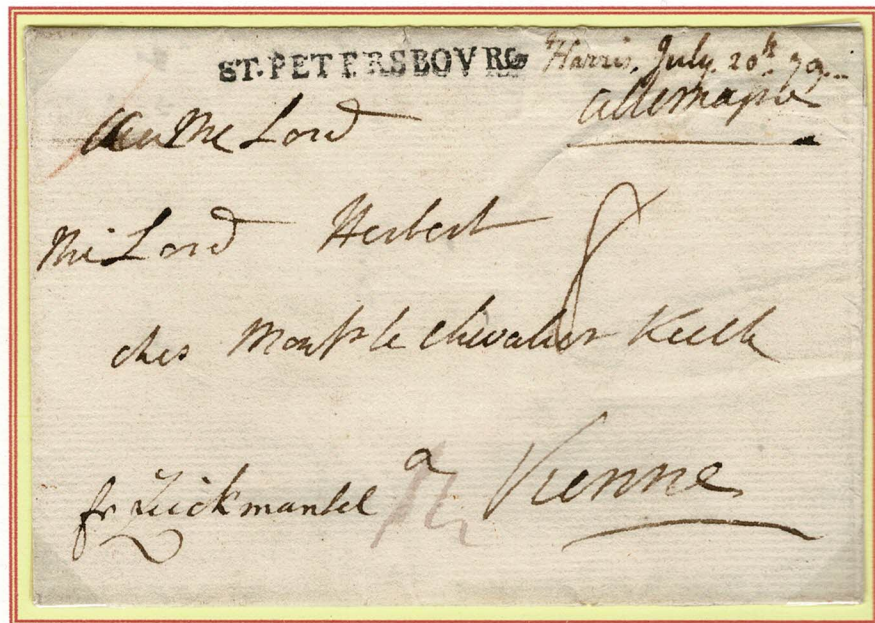 ST. PETERSBOVRG Harris, July 20th 79
Allemagne
Mi Lord
Mi Lord Herbert
8
ches Monsr le Chevalier Keith
a Vienne
fr Zuickmantel